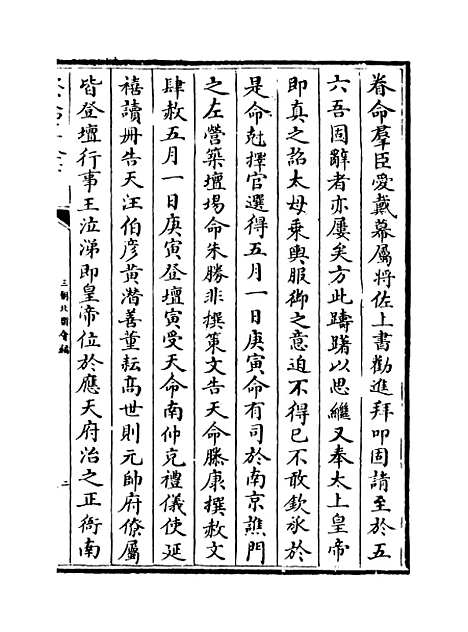 眷命羣臣愛戴幕屬將佐上書勸進拜叩固請至於五
六吾固辭者亦屢矣方此躊躇以思繼又奉太上皇帝
即真之詔太母乘輿服御之意迫不得已不敢欽承於
是命尅擇官選得五月一日庚寅命有司於南京譙門
之左營築壇場命朱勝非撰策文告天命滕康撰赦文
肆赦五月一日庚寅登壇寅受天命南仲充禮儀使延
禧讀冊告天汪伯彥黄潛善董耘高世則元帥府僚屬
皆登壇行事王泣涕即皇帝位於應天府治之正衙南
三朝北盟會編
二